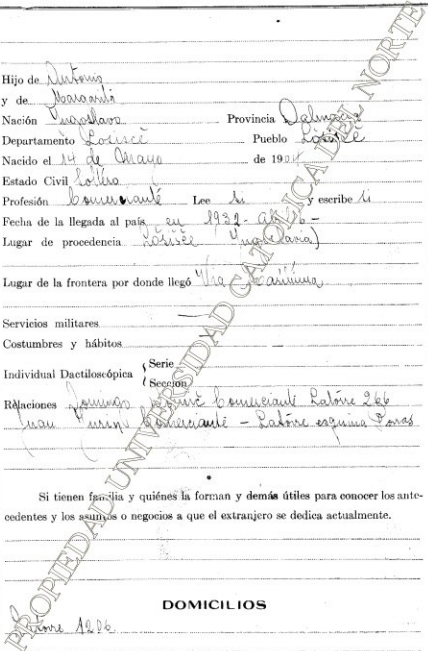 Hijo de Antonio
y de Margarita
Nación Yugoslava Provincia Dalmacia
Departamento Losiscé Pueblo Losiscé
Nacido el 14 de Mayo de 1904
Estado Civil Soltero
Profesión Comerciante Lee si y escribe si
Fecha de la llegada al país en 1932 -
Lugar de procedencia Losiscé Yugoslavia)
Lugar de la frontera por donde llegó Via Maritima
Servicios militares
Costumbres y hábitos
Individual Dactiloscópica { Serie
( Sección
Relaciones Domingo Comerciante Latorre 266
Juan Comerciante - Latorre esquina
Si tienen familia y quiénes la forman y demás útiles para conocer los ante-
cedentes y los asuntos o negocios a que el extranjero se dedica actualmente.
DOMICILIOS
Latorre 1206
PROPIEDAD UNIVERSIDAD CATOLICA DEL NORTE